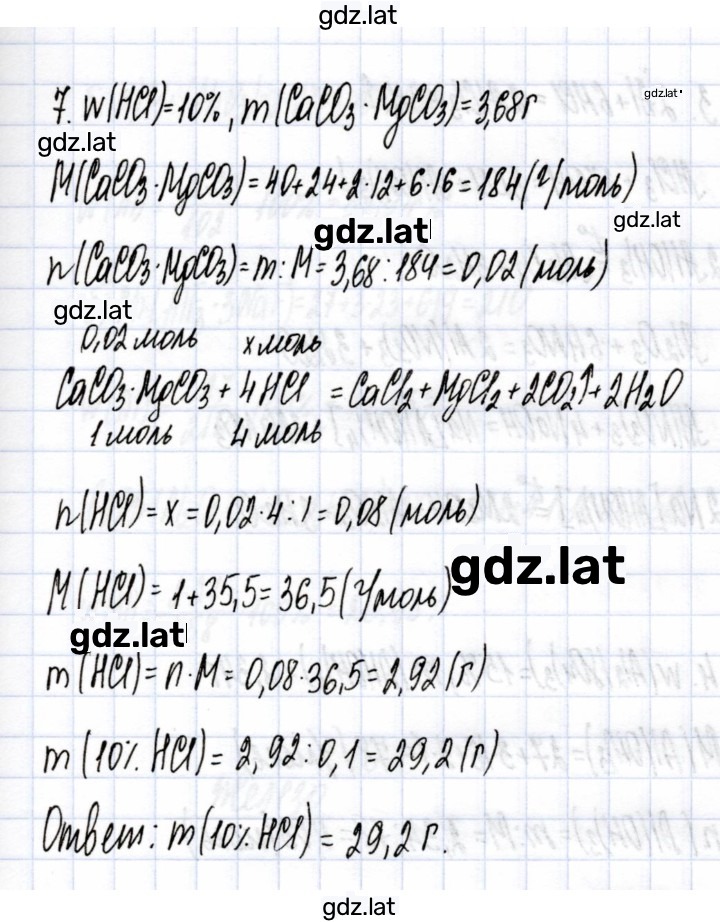 gdz.lat
7. w(HCl)=10%, m(CaCO₃·MgCO₃)=3,68г
gdz.lat
gdz.lat
M(CaCO₃·MgCO₃)=40+24+2·12+6·16=184(г/моль)
gdz.lat
gdz.lat
n(CaCO₃·MgCO₃)=m:M=3,68:184=0,02(моль)
gdz.lat
0,02 моль x моль
CaCO₃·MgCO₃+4HCl=CaCl₂+MgCl₂+2CO₂↑+2H₂O
1 моль 4 моль
n(HCl)=x=0,02·4:1=0,08(моль)
gdz.lat
M(HCl)=1+35,5=36,5(г/моль)
gdz.lat
m(HCl)=n·M=0,08·36,5=2,92(г)
m(10% HCl)=2,92:0,1=29,2(г)
Ответ: m(10% HCl)=29,2г.
gdz.lat